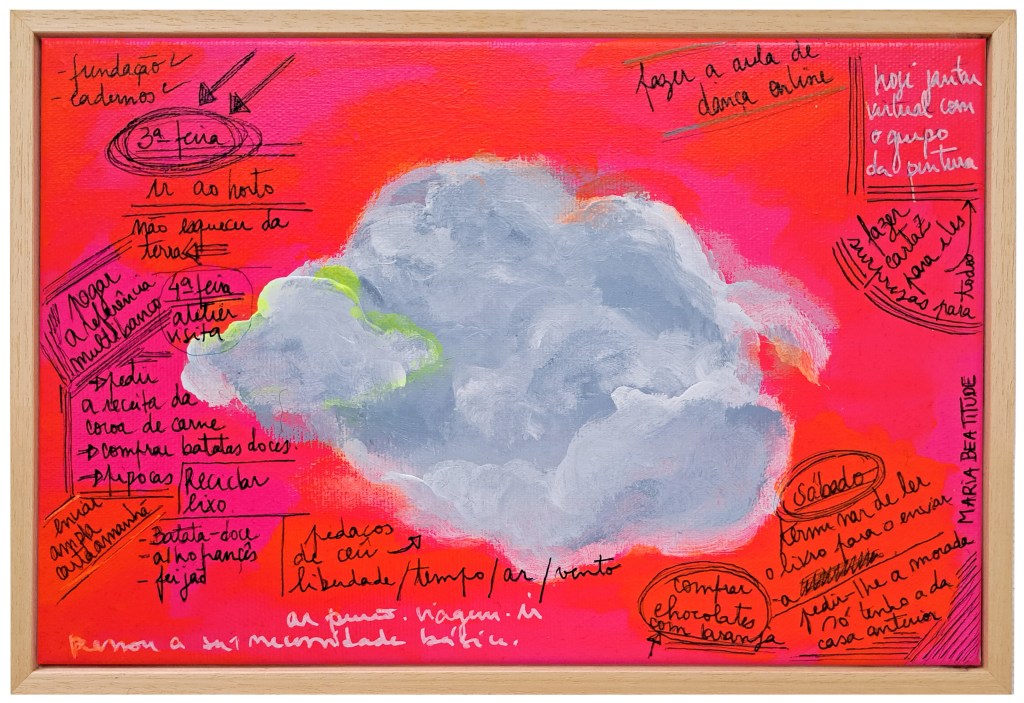 - fundação
- cadernos
3ª feira
ir ao horto
não esquecer da
terra
pagar
a referência
multibanco
4ª feira
atelier
visita
pedir
a receita da
coroa de carne
comprar batatas doces
pipocas
Reciclar
lixo.
enviar
- Batata-doce
- alho francês
- feijão
pedaços
de céu
liberdade/tempo/ar/vento
ar puro. viagem. ir
a necessidade básica.
fazer a aula de
dança online
hoje jantar
virtual com
o grupo
da pintura
fazer
cartaz
para eles
surpresas para todos
MARIA BEATITUDE
Sábado
terminar de ler
o livro para o enviar
a
pedir-lhe a morada
só tenho a da
casa anterior
comprar
chocolates
com laranja